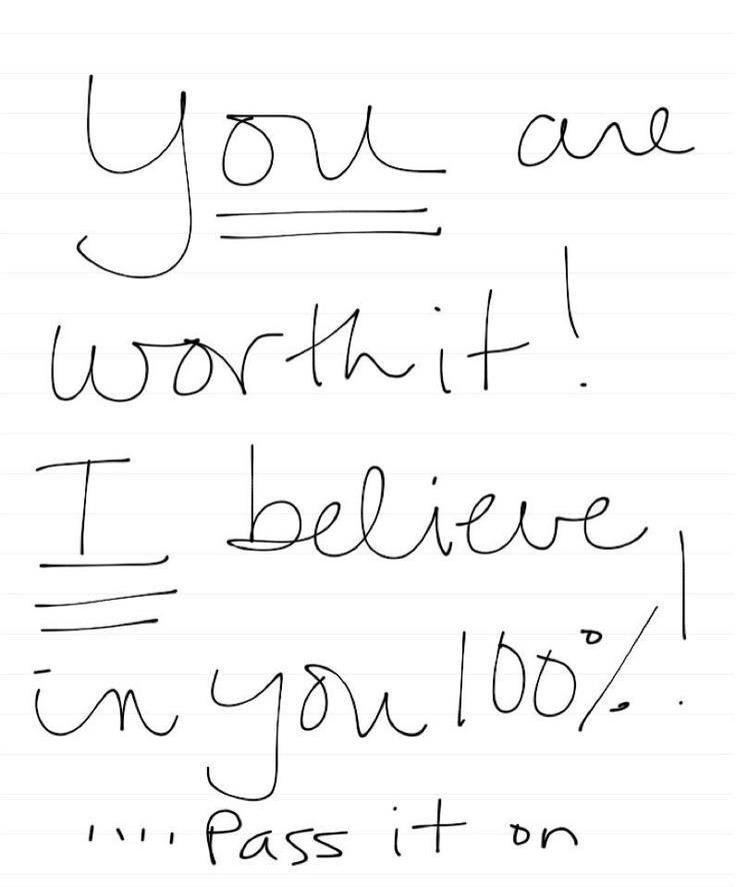 You are
worth it!
I believe
in you 100%!
.... Pass it on